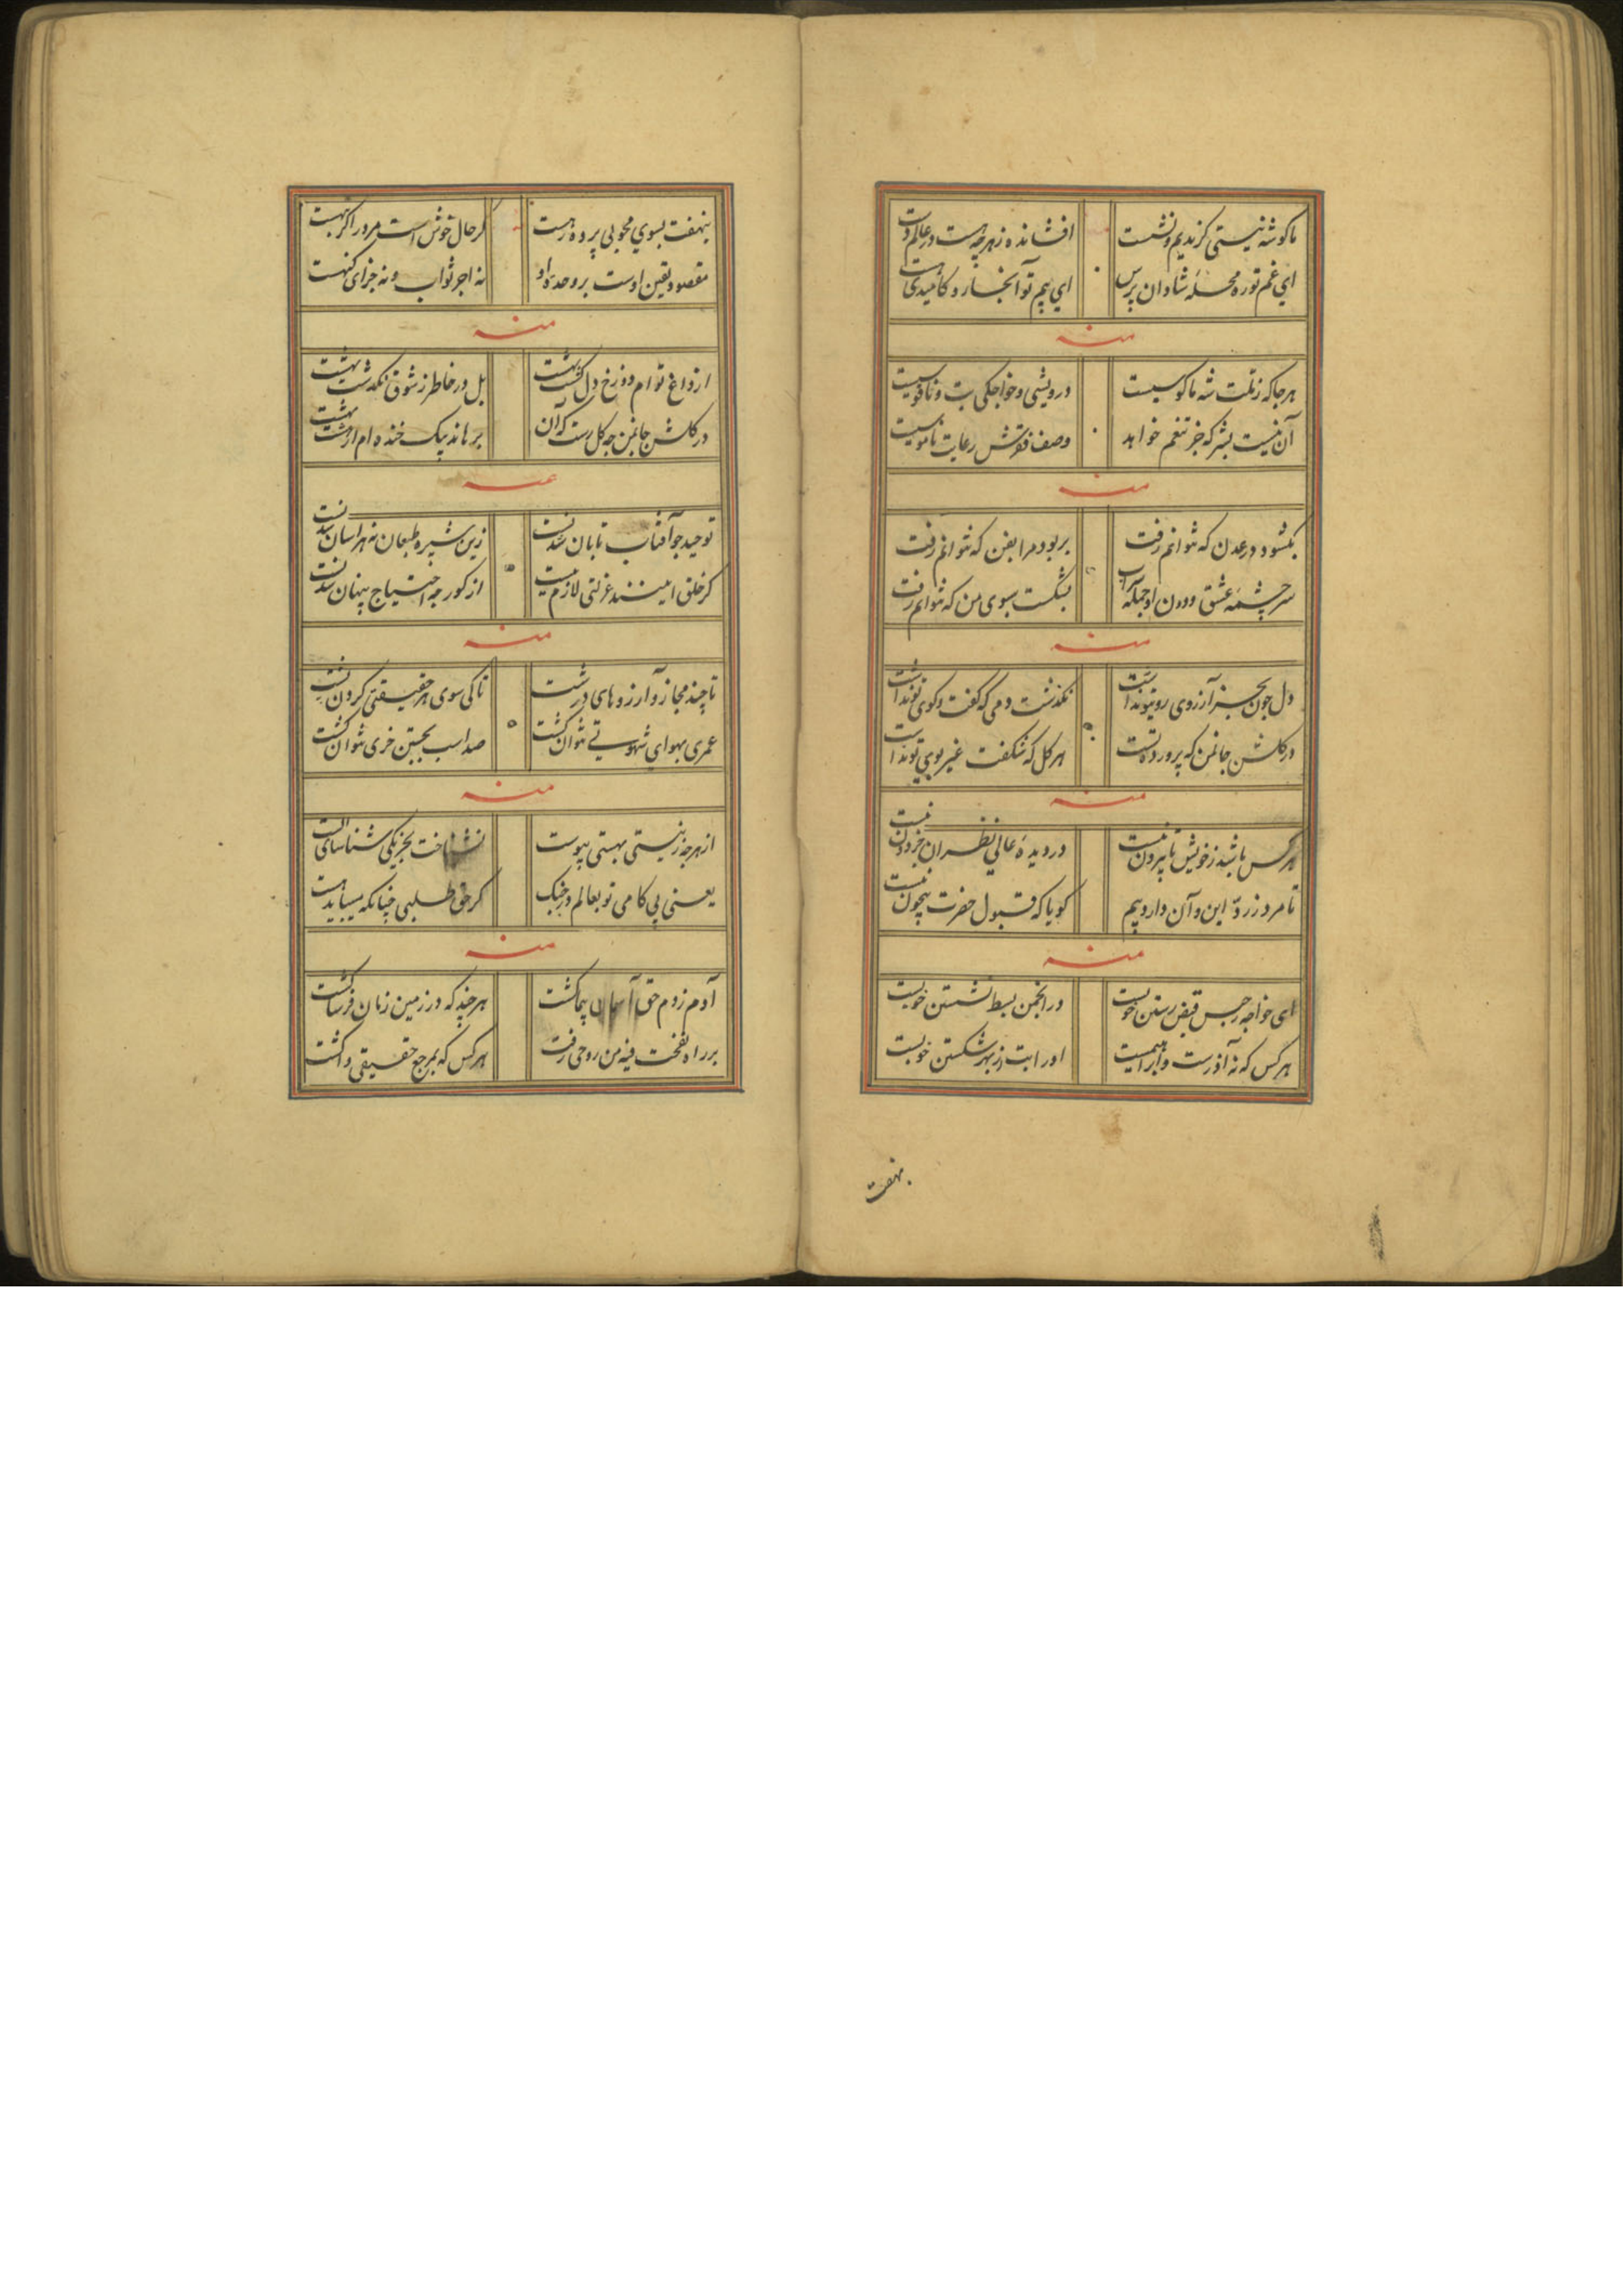 ما کوشه نیستی کزیدیم و نشست افشانده ز هرچه هست در عالم دست
ای غم تو ره محله شادان پرس ای بیم تو آنجا رو که امیدی هست
منه
هرجا که ز ملت شه ما کوسیست درویشی و خواجکی بت و ناقوسیست
آن نیست بشر که جز تنعم خواهد وصف فقرش رعایت ناموسیست
منه
بکشود در عدن که نتوانم رفت بربود مرا بفن که نتوانم رفت
سرچشمه عشق و درون او جمله آب بشکست سبوی من که نتوانم رفت
منه
دل چون بجز آرزوی روی تو نداشت نکذشت دمی که گفت وکوی تو نداشت
در کلشن جانمن که پرورده تست هر کل که شکفت غیر بوی تو نداشت
منه
هر کس باشد ز خویش تا بیرون نیست در دیده عالی نظران جز دون نیست
تا مرد ز رد این و آن دارد بیم کویا که قبول حضرت بیچون نیست
منه
ای خواجه ز حبس قبض رستن خوبست در انجمن بسط نشستن خوبست
هر کس که نه آذرست و ابراهیمست او را بت از بهر شکستن خوبست
بنهفت
بنهفت بسوی محوبی پرده رهست کر حال خوش است مرورا کر تبهست
مقصود یقین اوست بر وحدة او نه اجر ثواب و نه جزای کنهست
منه
از داغ توام دوزخ دل کشت بهشت بل در خاطر ز شوق نکذشت بهشت
در کلشن جانمن چه کل رست که آن برهاند بیک خنده ام از هشت بهشت
منه
توحید چو آفتاب تابان شدنست زین شپره طبعان نه هراسان شدنست
کر خلق امینند عزلتی لازم نیست از کور چه احتیاج پنهان شدنست
منه
تا چند مجاز و آرزوهای درشت تا کی سوی هر حقیقتی کردن پشت
عمری بهوای شهوتی نتوان کشت صد اسب بجستن خری نتوان کشت
منه
از هرچه ز نیستی بهستی پیوست نشناخت بجز یکی شناسای الست
یعنی بی کامی تو بعالم در جنک کر حق طلبی چنانکه میباید هست
منه
آدم ز دم حق آسمان پیما کشت هرچند که در زمین زمان فرسا کشت
بر راه نفخت فیه من روحی رفت هر کس که بمرجع حقیقی وا کشت